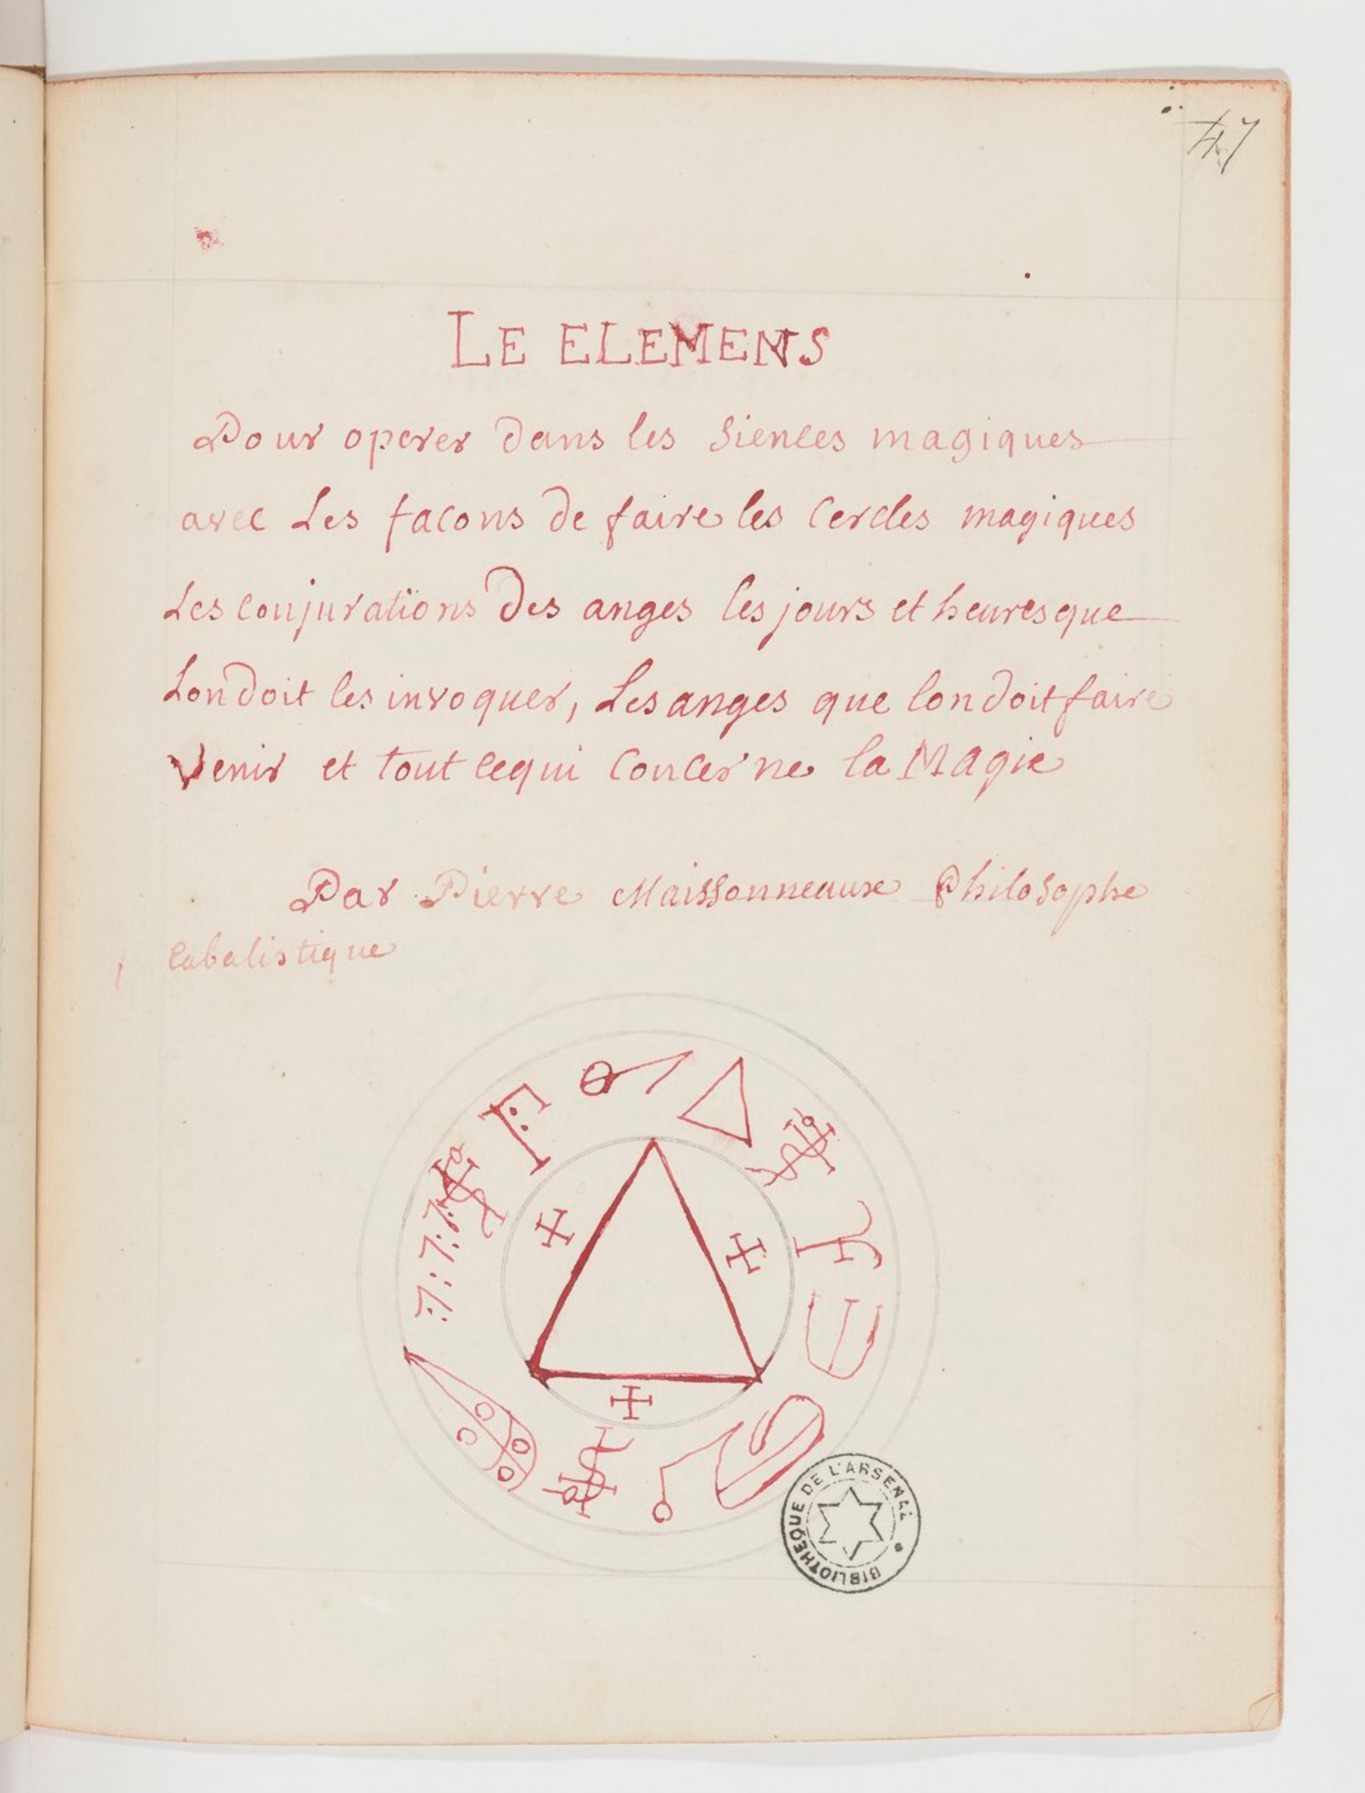 47
LE ELEMENS
Pour operer dans les Siences magiques
avec Les facons de faire les Cercles magiques
Les conjurations Des anges les jours et heures que
Lon doit les invoquer, Les anges que lon doit faire
Venir et tout cequi Concerne la Magie
Par Pierre Maissonneaux Philosophe
Cabalistique
BIBLIOTHÈQUE DE L'ARSENAL